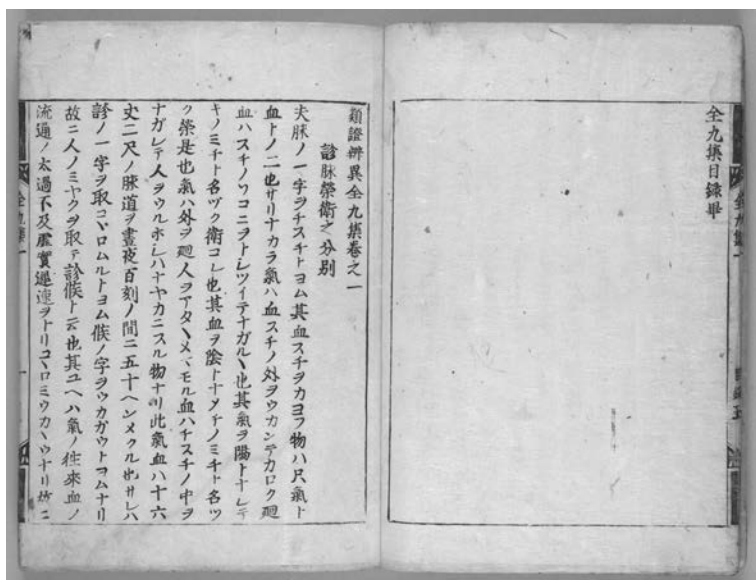 全九集目録畢
類證辨異全九集巻之一
診脉榮衛之分別
夫脉ノ一字ヲチスチトヨム其血スチヲカヨフ物ハ只氣ト
血トノ二也サリナカラ氣ハ血スチノ外ヲウカンテカロク廻
血ハスチノソコニヲトシツイテナガルヽ也其氣ヲ陽トナシテ
キノミチト名ヅク衛コレ也其血ヲ陰トナメチノミチト名ツ
ク榮是也氣ハ外ヲ廻人ヲアタヽメマモル血ハチスチノ中ヲ
ナガレテ人ヲウルホシハナヤカニスル物ナリ此氣血ハ十六
丈二尺ノ脉道ヲ晝夜百刻ノ間ニ五十ヘンメクル也サレハ
診ノ一字ヲ取コヽロムルトヨム候ノ字ヲウカガウトヨムナリ
故ニ人ノミヤクヲ取テ診候ト云也其ユヘハ氣ノ往來血ノ
流通ノ太過不及虚實遲速ヲトリコヽロミウカヽウナリ
全九集一